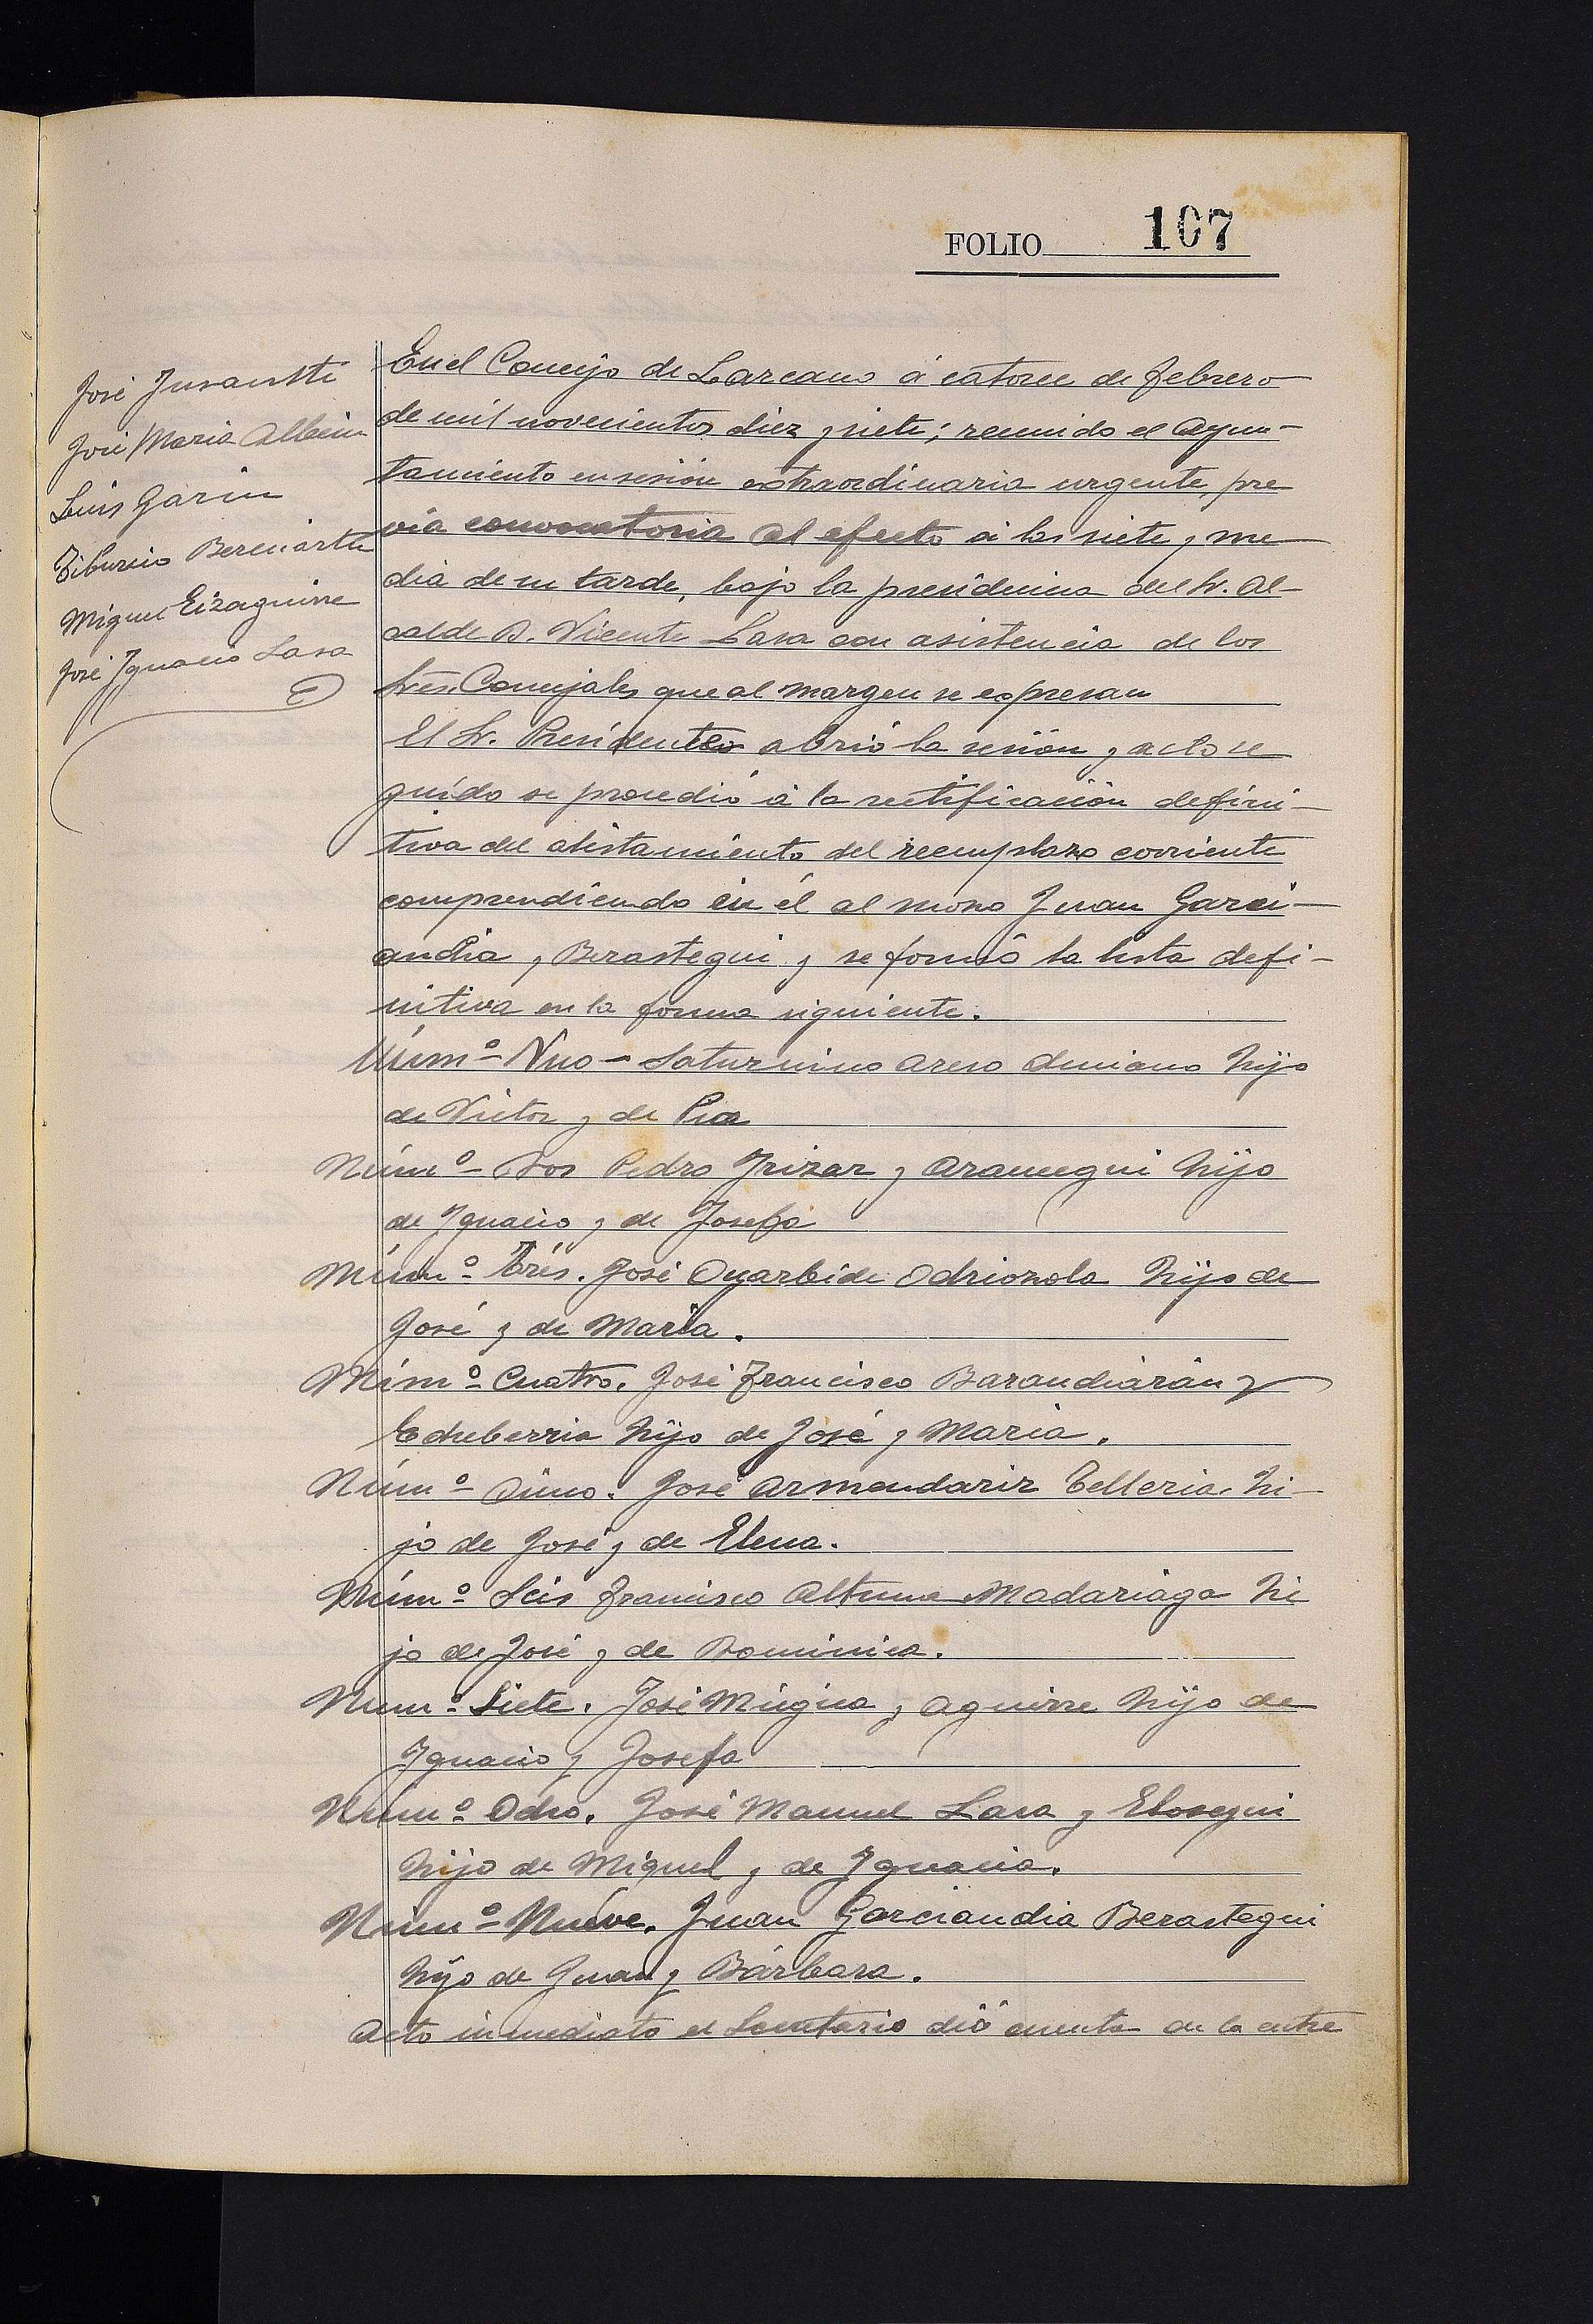 FOLIO 107
José Insausti
José Maria Albisu
Luis Garin
Tiburcio Bereciartu
Miguel Eizaguirre
José Ignacio Lasa
En el Concejo de Lazcano á catorce de febrero
de mil novecientos diez y siete; reunido el Ayun-
tamiento en sesión extraordinaria urgente, pre
via convocatoria al efecto á las siete y me
dia de su tarde, bajo la presidencia del Sr. Al-
calde D. Vicente Lasa con asistencia de los
Sres. Concejales que al margen se expresan
El Sr. Presidente abrió la sesión y acto se
guido se procedió á la rectificación defini-
tiva del alistamiento del reemplazo corriente
comprendiendo en él al mozo Juan Garci-
andia y Berastegui y se formó la lista defi-
nitiva en la forma siguiente.
Núm.º Uno - Saturnino Areso hijo
de Victor y de Pia
Núm.º Dos Pedro Irizar y Aramegui hijo
de Ignacio y de Josefa
Núm.º Trés. José Oyarbide Odriozola hijo de
José y de Maria.
Núm.º Cuatro. José Francisco Barandiarán y
Echeberria hijo de José y Maria.
Núm.º Cinco. José Armendariz Telleria, hi-
jo de José y de Elena.
Núm.º Seis Francisco Altuna Madariaga hi
jo de José y de Dominica.
Núm.º Siete. José Múgica y Aguirre hijo de
Ignacio y Josefa
Núm.º Ocho. José Manuel Lasa y Elosegui
hijo de Miguel y de Ignacia.
Núm.º Nueve. Juan Garciandia Berastegui
hijo de Juan y Bárbara.
Acto inmediato el Secretario dió cuenta de la entre